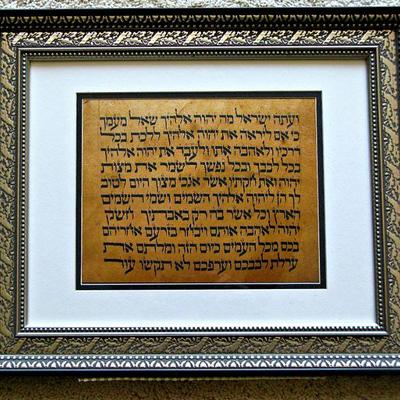 ועתה ישראל מה יהוה אלהיך שאל מעמך
כי אם ליראה את יהוה אלהיך ללכת בכל
דרכיו ולאהבה אתו ולעבד את יהוה אלהיך
בכל לבבך ובכל נפשך לשמר את מצות
יהוה ואת חקתיו אשר אנכי מצוך היום לטוב
לך הן ליהוה אלהיך השמים ושמי השמים
הארץ וכל אשר בה רק באבתיך חשק
יהוה לאהבה אותם ויבחר בזרעם אחריהם
בכם מכל העמים כיום הזה ומלתם את
ערלת לבבכם וערפכם לא תקשו עוד